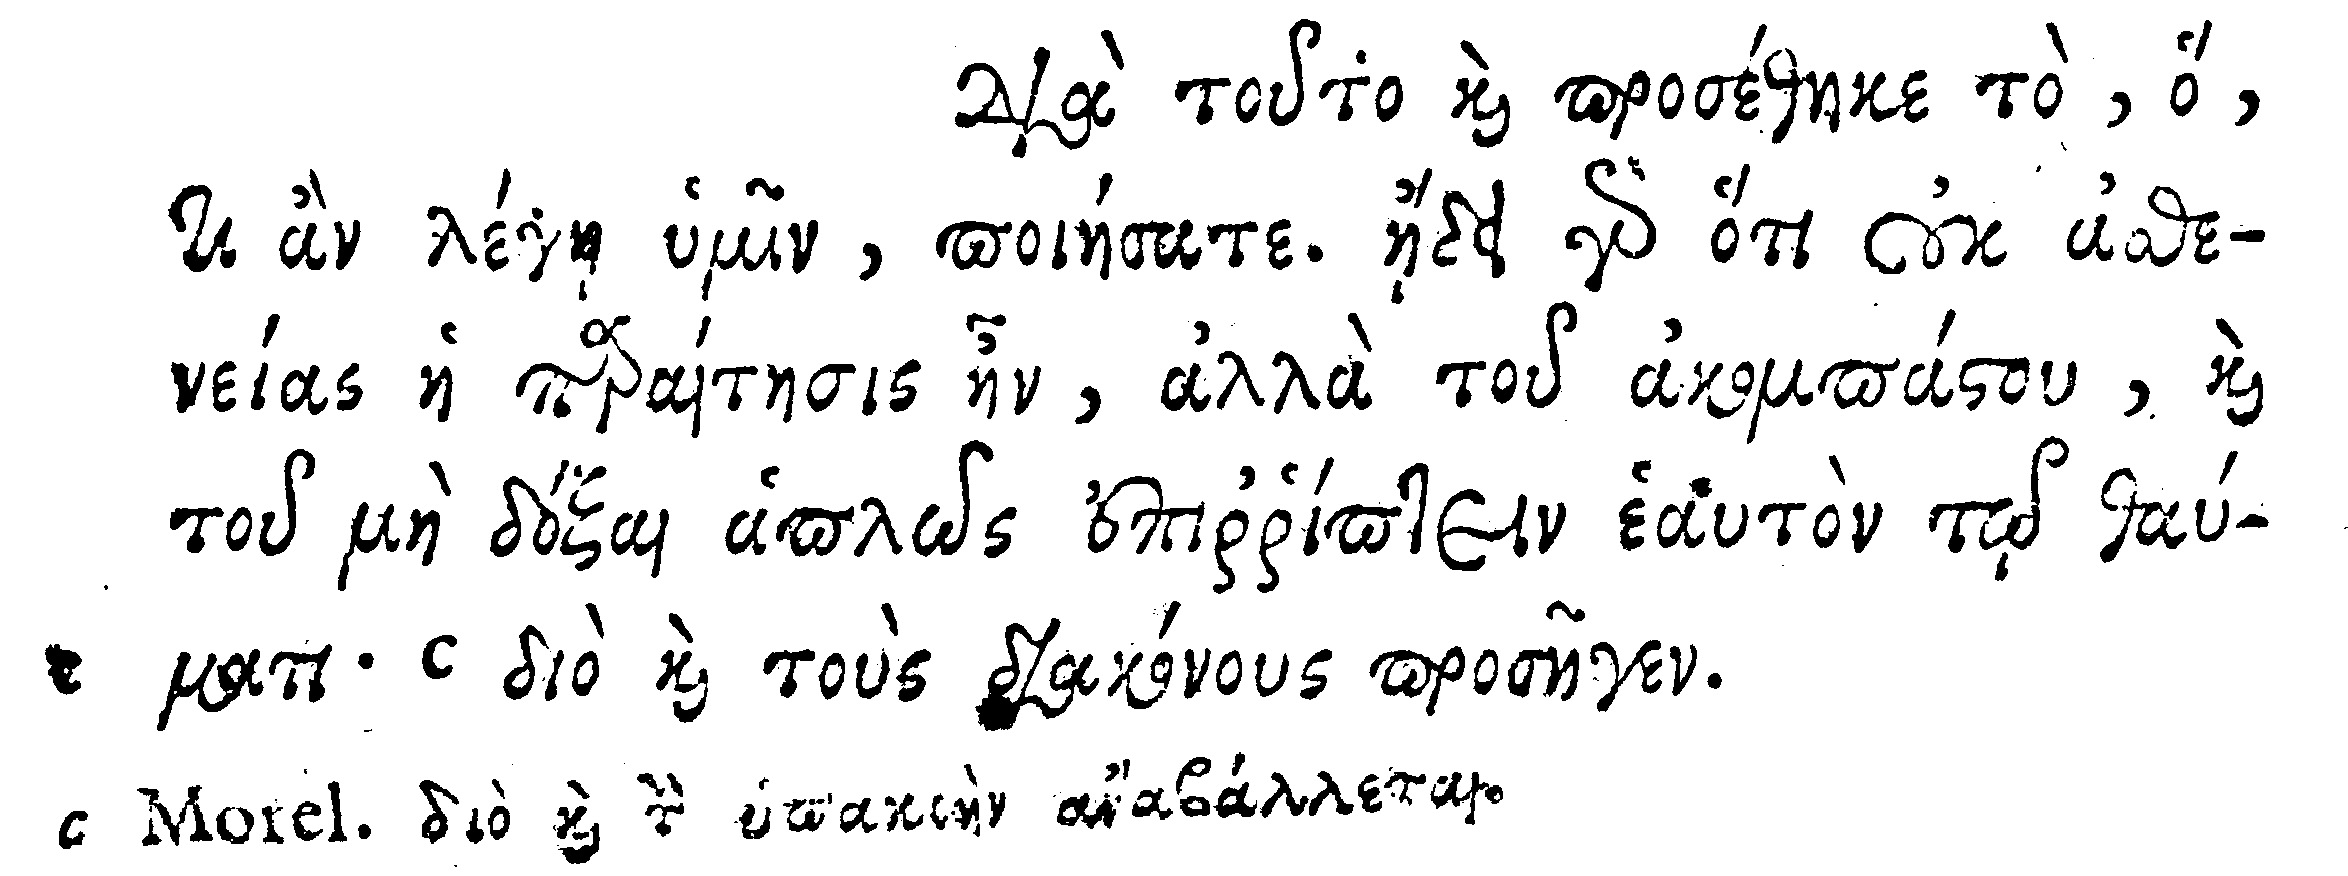 Διὰ τοῦτο καὶ προσέθηκε τὸ, ὅ,
τι ἂν λέγῃ ὑμῖν, ποιήσατε. ᾔδει γὰρ ὅτι οὐκ ἀσθε-
νείας ἡ παραίτησις ἦν, ἀλλὰ τοῦ ἀκομπάστου, καὶ
τοῦ μὴ δόξαι ἁπλῶς ἐπιῤῥίπτειν ἑαυτὸν τῷ θαύ-
ματι· c διὸ καὶ τοὺς διακόνους προσῆγεν.
c Morel. διὸ καὶ τὴν ὑπακοὴν ἀναβάλλεται.